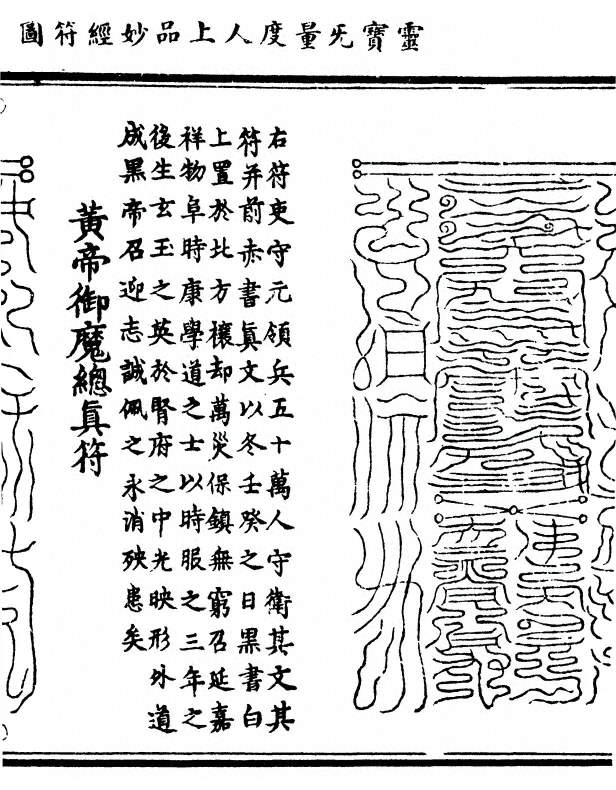 靈寶旡量度人上品妙經符圖
右符吏守元領兵五十萬人守衛其文其
符并前赤書真文以冬壬癸之日黑書白
上置於北方禳却萬災保鎮無窮召延嘉
祥物阜時康學道之士以時服之三年之
後生玄玉之英於腎府之中光映形外道
成黑帝召迎志誠佩之永消殃患矣
黃帝御魔總真符